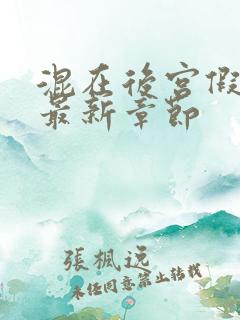 混在後宮假
最新章節
張楓逸
未任同意禁止轉載